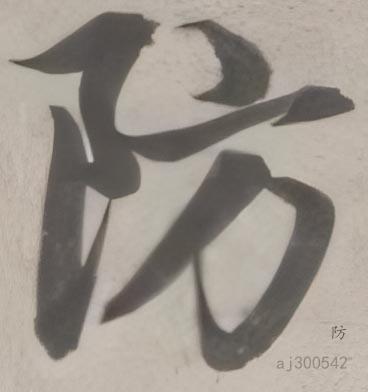 防
防
aj300542